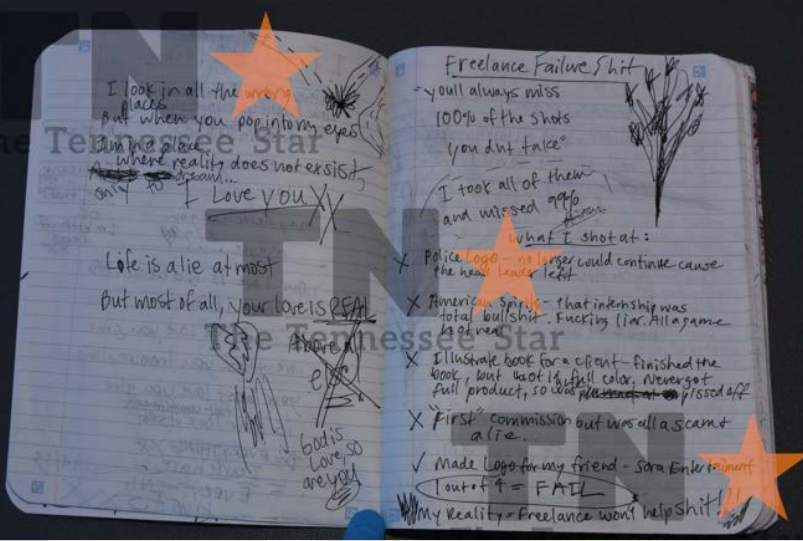 I look in all the wrong
places
But when you pop into my eyes
I am in a place
where reality does not exsist,
only to dream...
I Love you
Life is a lie at most
But most of all, your love is REAL
Above all
else
God is
Love, so
are you
Freelance Failure Shit
"youll always miss
100% of the shots
you dnt take"
I took all of them
and missed 99%
What I shot at:
X Police Logo - no longer could continue cause
the head leader left
X American Spirits - that internship was
total bullshit. Fucking liar. All a game
not real
X Illustrate book for a client - finished the
book, but not in full color. Never got
full product, so was pissed off
X "First" commission but was all a scam &
a lie.
✓ Made Logo for my friend - Sara Entertainment
1 out of 4 = FAIL
My Reality = Freelance wont help shit!!!
TN
The Tennessee Star
TN
The Tennessee Star
TN